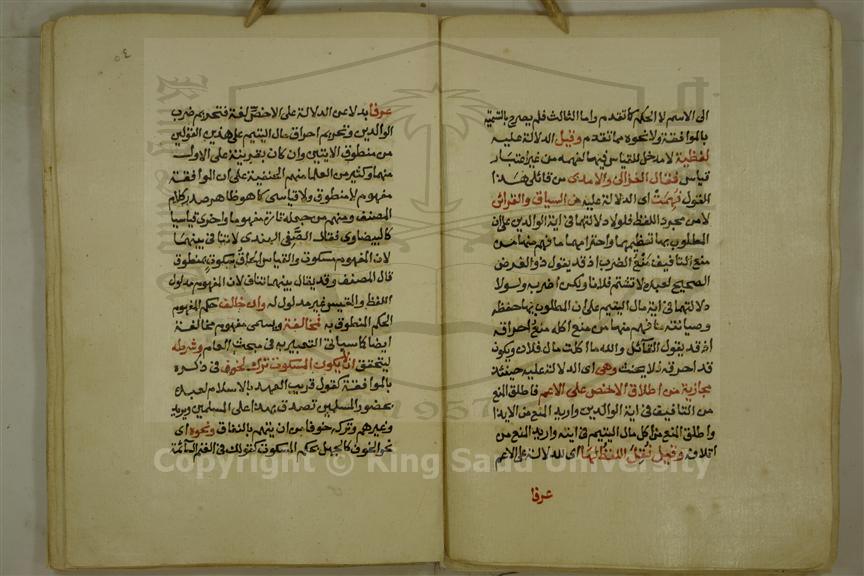 الى الاسم لا الحكم كما تقدم واما الثالث فلم يصرح بالتسمية
بالموافقة ولا نحوه مما تقدم وقيل الدلالة عليه
لفظية لا مدخل للقياس فيها لفهمه من غير اعتبار
قياس فقال الغزالي والامدي من قائلي هذا
القول فهمت اى الدلالة عليه من السياق والقرائن
لا من مجرد اللفظ فلولا دلالتهما في اية الوالدين على ان
المطلوب بهما تعظيمهما واحترامهما ما فهم منهما من
منع التافيف منع الضرب اذ قد يقول ذو الغرض
الصحيح لعبده لا تشتم فلانا ولكن اضربه ولولا
دلالتهما في اية مال اليتيم على ان المطلوب بها حفظه
وصيانته ما فهم منها من منع اكله منع احراقه
اذ قد يقول القائل والله ما اكلت مال فلان ويكون
قد احرقه فلا يحنث وهي اى الدلالة عليه حينئذ
مجازية من اطلاق الاخص على الاعم فاطلق المنع
من التافيف في اية الوالدين واريد المنع من الايذا
واطلق المنع من اكل مال اليتيم في ايته واريد المنع من
اتلافه وقيل نقل اللفظ لها اى للدلالة على الاعم
عرفا
عرفا بدلا عن الدلالة على الاخص لغة فتحريم ضرب
الوالدين وتحريم احراق مال اليتيم على هذين القولين
من منطوق الايتين وان كان بقرينة على الاول
منهما وكثير من العلما منهم الحنفية على ان الموافقة
مفهوم لا منطوق ولا قياسى كما هو ظاهر صدر كلام
المصنف ومنهم من جعله تارة مفهوما واخرى قياسيا
كالبيضاوى فقال الصفى الهندى لا تنافى بينهما
لان المفهوم مسكوت والقياس الحاق مسكوت بمنطوق
قال المصنف وقد يقال بينهما تناف لان المفهوم مدلول
اللفظ والمقيس غير مدلول له وان خالف حكم المفهوم
الحكم المنطوق به فمخالفة ويسمى مفهوم مخالفة
ايضا كما سياتى التعبير به فى مبحث العام وشرطه
ليتحقق ان لا يكون المسكوت ترك لخوف فى ذكره
بالموافقة كقول قريب العهد بالاسلام لعبده
بحضور المسلمين تصدق بهذا على المسلمين ويريد
وغيرهم وتركه خوفا من ان يتهم بالنفاق ونحوه اى
نحو الخوف كالجهل بحكم المسكوت كقولك فى الغنم السائمة
Copyright © King Saud University
1957